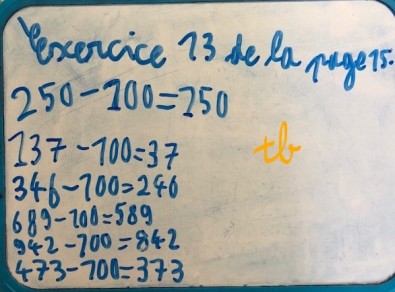 Exercice 13 de la page 15.
250-100=150
137-100=37
tb
346-100=246
689-100=589
942-100=842
473-100=373